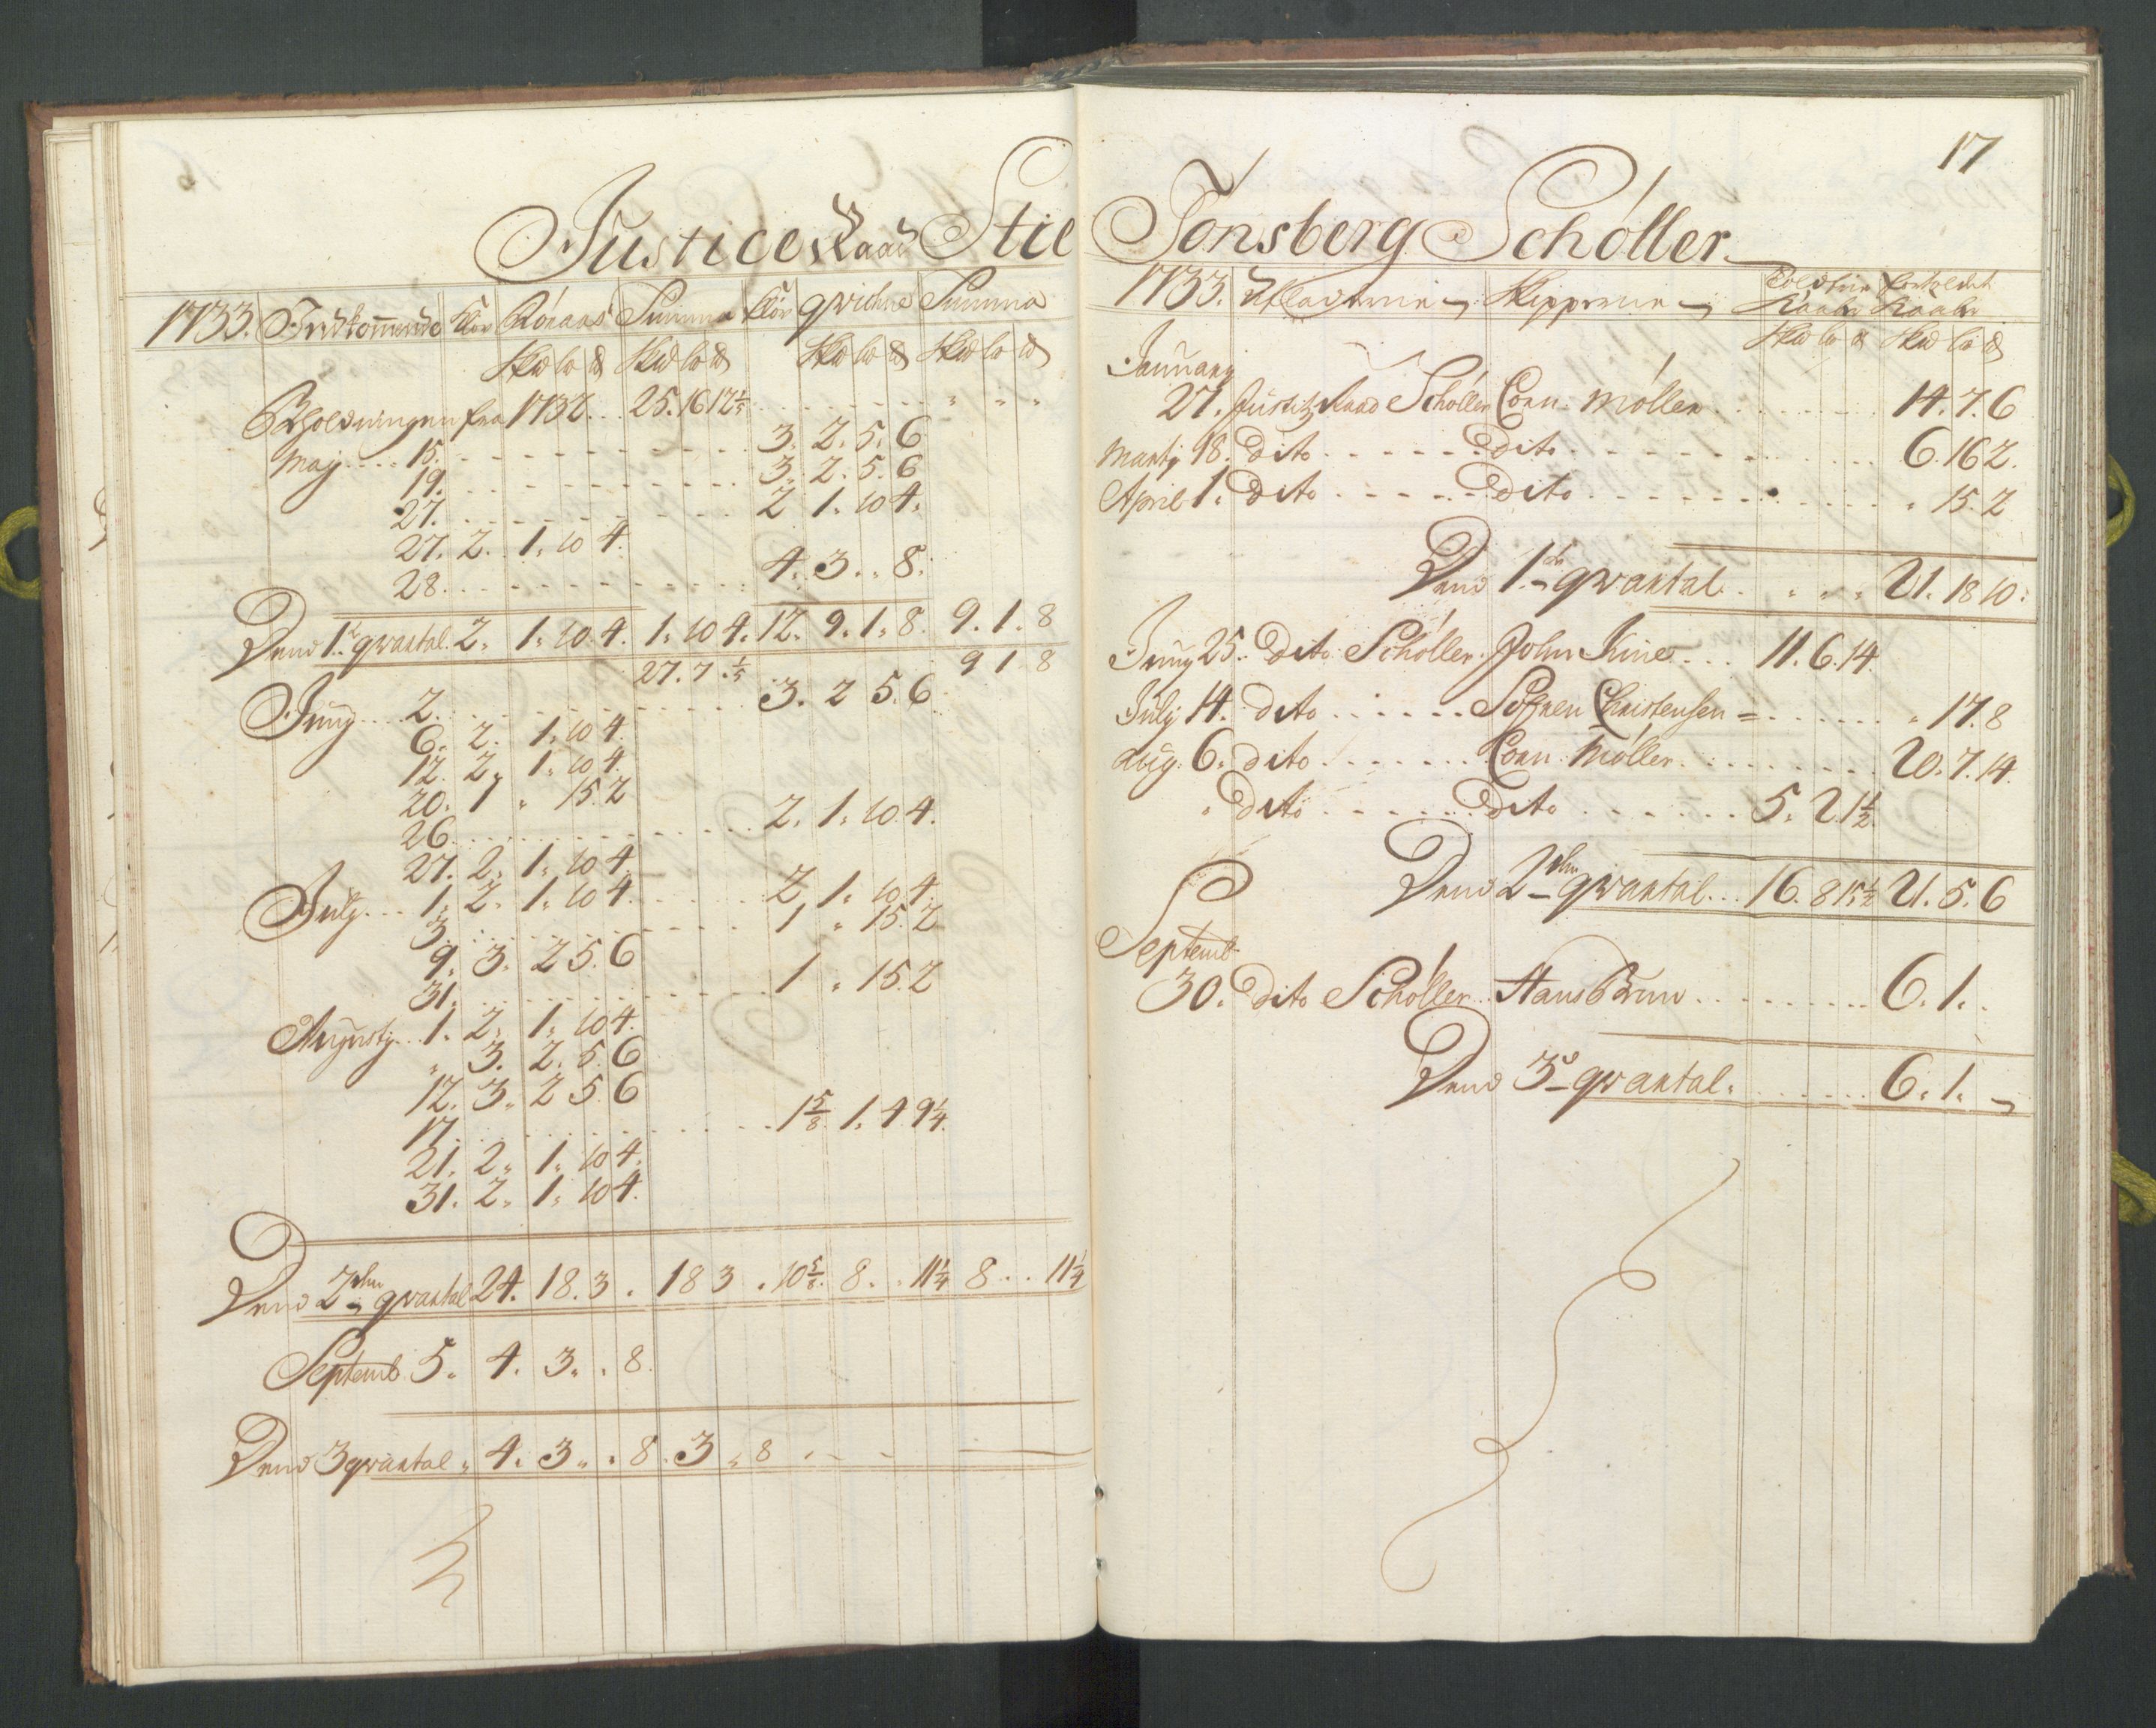 Justice Raad Stie
1733. Indkommende Klöv Röraas Summa Klöv qvickne Summa
Skd lb ℔ Skd lb ℔ Skd lb ℔ Skd lb ℔
Beholdningen fra 1732... 25. 16 12½ . . . . . . " " "
Maj.... 15. . . . . . . . . . . . 3. 2. 5. 6
19. . . . . . . . . . . . 3. 2. 5. 6
27. . . . . . . . . . . . 2 1. 10 4.
27. 2. 1. 10 4.
28. . . . . . . . . . . . 4. 3. " 8.
Dend 1te qvartal. 2. 1. 10. 4. 1. 10 4. 12. 9. 1. 8. 9. 1. 8
27. 7. ½ 9 1 8
Junij... 2. . . . . . . . . . . . 3. 2 5. 6
6. 2. 1. 10 4.
12. 2. 1. 10 4.
20. 1 " 15. 2
26. . . . . . . . . . . . 2. 1. 10. 4.
27. 2. 1. 10 4.
July... 1. 2. 1. 10 4. . . . . . 2 1. 10 4.
3. . . . . . . . . . . . 1 " 15. 2
9. 3. 2 5. 6
31. . . . . . . . . . . . 1 " 15. 2
Augustj... 1. 2. 1. 10 4.
" 3. 2. 5. 6
12. 3. 2 5. 6
17. . . . . . . . . . . . 1⅝ 1. 4 9¼.
21. 2. 1. 10 4.
31. 2. 1. 10 4.
Dend 2den qvartal 24. 18. 3 . 18 3 . 10⅝. 8. . 11¼ 8 . . 11¼
Septemb. 5. 4. 3. . 8.
Dend 3 qvartal . 4. 3. . 8. 3 " 8 . - -
17
Tönsberg Schöller
1733. Afladerne Skipperne Toldfrie fortoldet
Kaaber Kaaber
Skd lb ℔ Skd lb ℔
January
27. Justitz Raad Schöller Corn. Möller. . . . . . . . 14. 7. 6
Martij 18. Dito . . . . . Dito . . . . . . . . 6. 16 2.
April 1. Dito . . . . . Dito . . . . . . . . " 15. 2
Dend 1te qvartal. . " " " 21. 18 10.
Junij 25. Dito Schöller. John Kine... 11. 6. 14.
Julj 14. dito . . . . . Söfren Christensen = . . . . . " 17. 8
Aug. 6. dito . . . . . Corn. Möller . . . . . . . . 20. 7. 14.
" Dito . . . . . Dito . . . . . 5. 2. 1½
Dend 2den qvartal... 16. 8 15½ 21. 5. 6
Septemb.
30. Dito Schöller.. Hans Brun . . . . . . . . 6. 1. .
Dend 3e qvartal. . . . . . . 6. 1. -